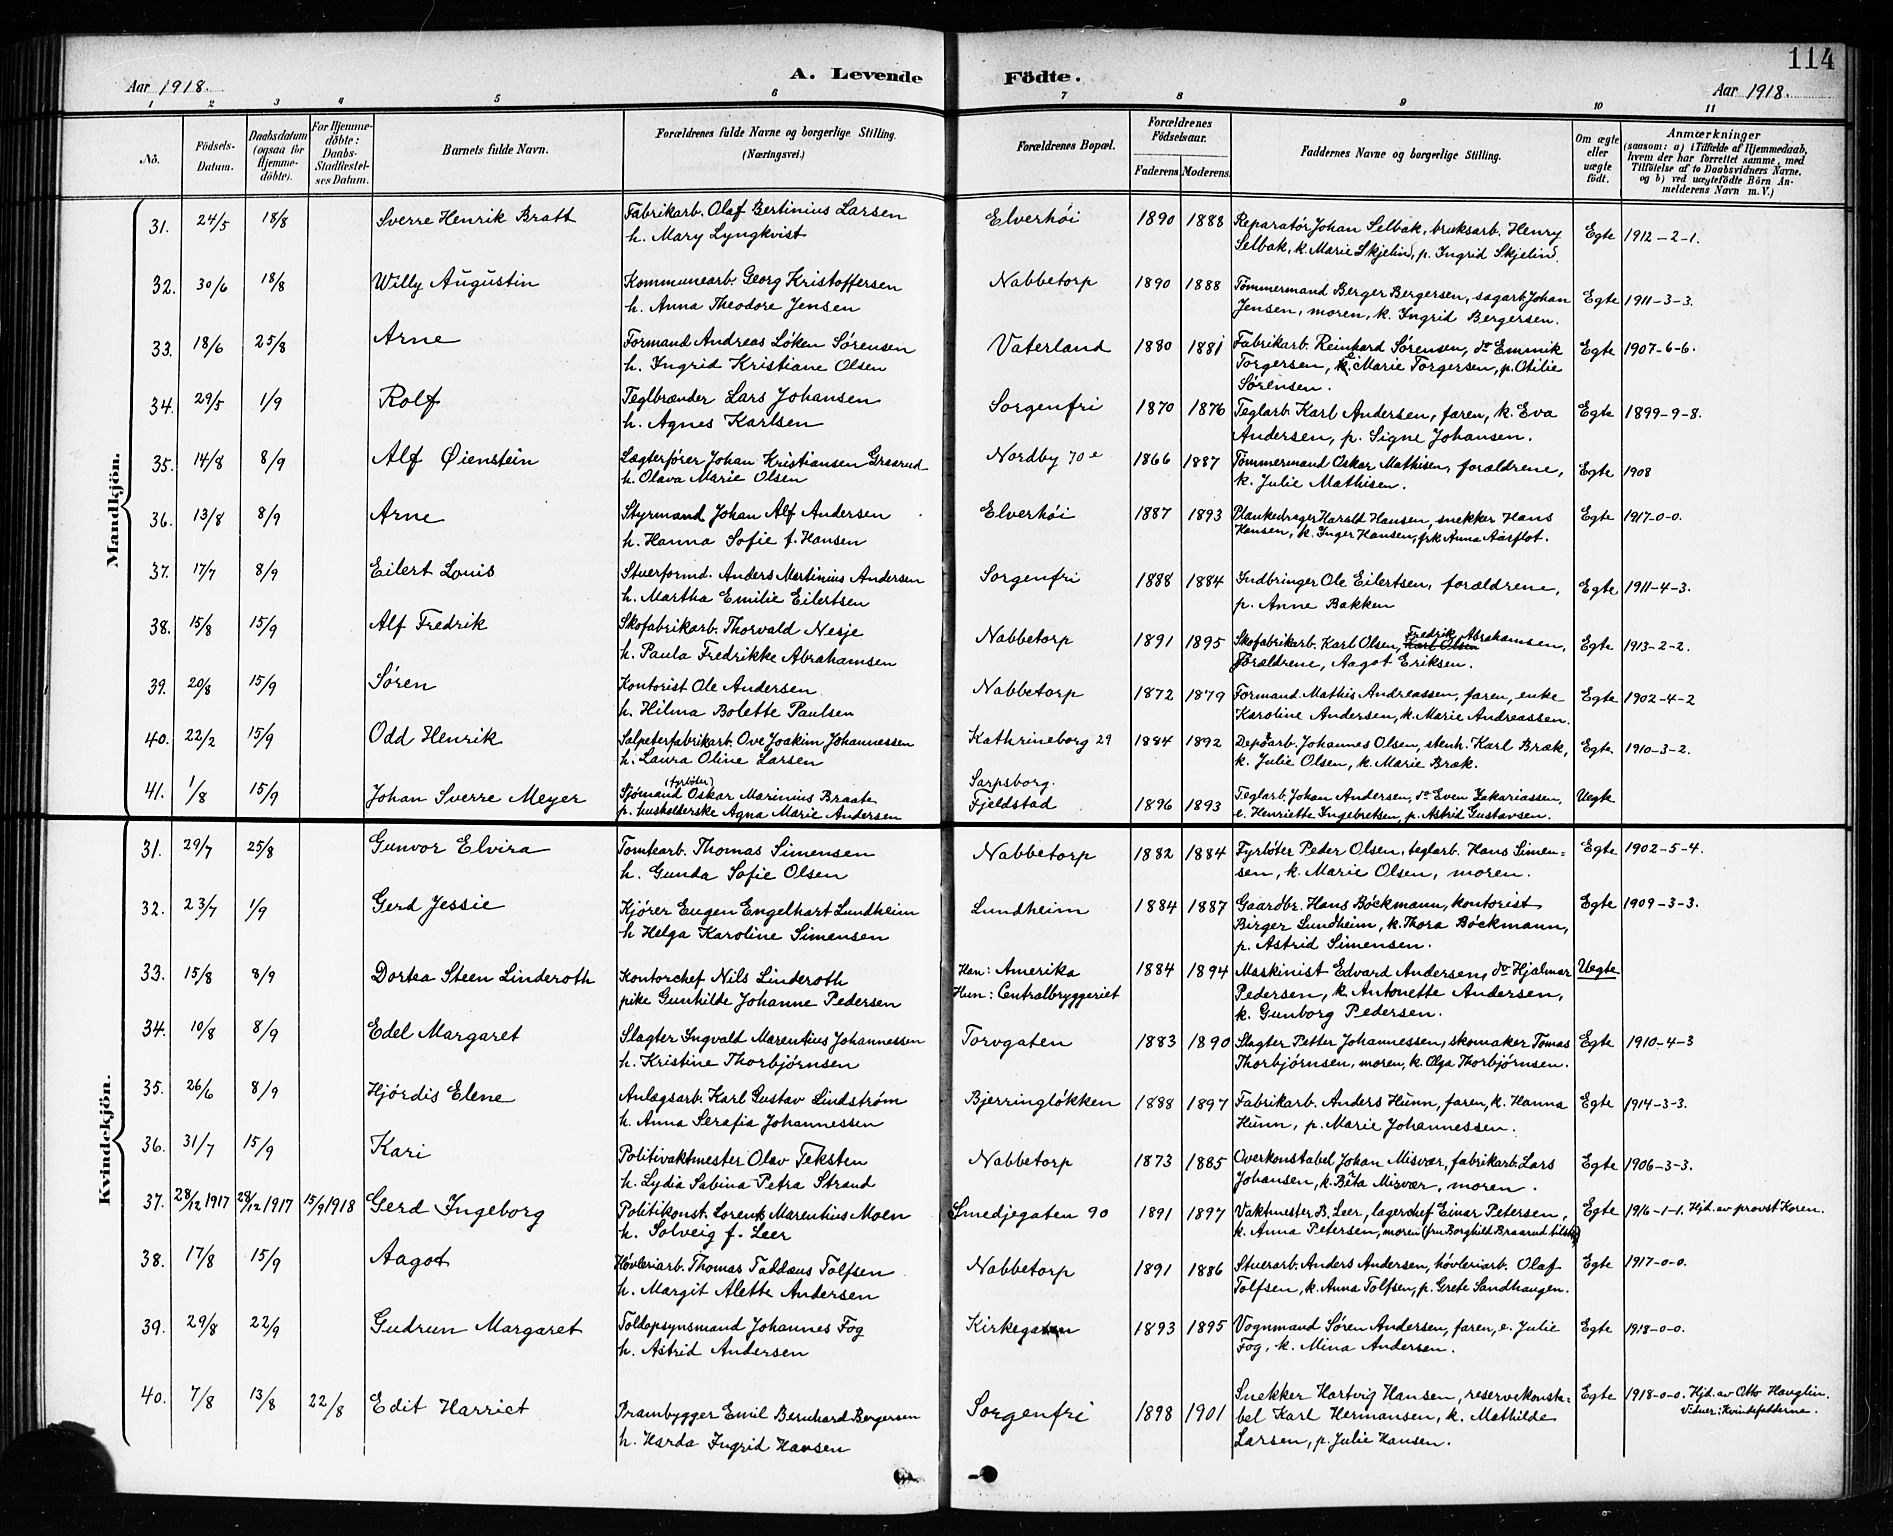 114
Aar 1918.
A. Levende Födte.
Aar 1918.
1 2 3 4 5 6 7 8 9 10 11
No.
Födsels-Datum.
Daabsdatum (ogsaa for Hjemmedöbte).
For Hjemmedöbte: Daabs-Stadfæstelses Datum.
Barnets fulde Navn.
Forældrenes fulde Navne og borgerlige Stilling. (Næringsvei.)
Forældrenes Bopæl.
Forældrenes Födselsaar.
Faderens Moderens
Faddernes Navne og borgerlige Stilling.
Om ægte eller uægte födt.
Anmærkninger
(saasom: a) i Tilfælde af Hjemmedaab, hvem der har forrettet samme, med Tilföielse af to Daabsvidners Navne, og b) ved uægtefödte Börn Anmelderens Navn m. V.)
Mandkjön.
31. 24/5 18/8 Sverre Henrik Bratt Fabrikarb. Olaf Bertinius Larsen Elverhöi 1890 1888 Reparatör Johan Selbak, bruksarb. Henry Egte 1912-2-1.
h. Mary Lyngkvist Selbak, k. Marie Skjelin, p. Ingrid Skjelin.
32. 30/6 18/8 Willy Augustin Kommunearb. Georg Kristoffersen Nabbetorp 1890 1888 Tömmermand Berger Bergersen, sagarb. Johan Egte 1911-3-3.
h. Anna Theodore Jensen Jensen, moren, k. Ingrid Bergersen.
33. 18/6 25/8 Arne Formand Andreas Löken Sörensen Vaterland 1880 1881 Fabrikarb. Reinhard Sörensen, do Emmik Egte 1907-6-6.
h. Ingrid Kristiane Olsen Torgersen, k. Marie Torgersen, p. Otilie
Sörensen.
34. 29/5 1/9 Rolf Teglbrænder Lars Johansen Sorgenfri 1870 1876 Teglarb. Karl Andersen, faren, k. Eva Egte 1899-9-8.
h. Agnes Karlsen Andersen, p. Signe Johansen.
35. 14/8 8/9 Alf Øienstein Lægterfører Johan Kristiansen Græsrud Nordby 70 e 1866 1887 Tømmermand Oskar Mathisen, forældrene, Egte 1908
h. Olava Marie Olsen k. Julie Mathisen.
36. 13/8 8/9 Arne Styrmand Johan Alf Andersen Elverhöi 1887 1893 Plankedrager Harald Hansen, snekker Hans Egte 1917-0-0.
h. Hanna Sofie f. Hansen Hansen, k. Inger Hansen, frk Anna Aarflot.
37. 17/7 8/9 Eilert Louis Stuerformd. Anders Martinius Andersen Sorgenfri 1888 1884 Indbringer Ole Eilertsen, forældrene, Egte 1911-4-3.
h. Martha Emilie Eilertsen p. Anne Bakken
38. 15/8 15/9 Alf Fredrik Skofabrikarb. Thorvald Nesje Nabbetorp 1891 1895 Skofabrikarb. Karl Olsen, Karl Olsen Fredrik Abrahamsen, Egte 1913-2-2.
h. Paula Fredrikke Abrahamsen forældrene, Aagot Eriksen.
39. 20/8 15/9 Sören Kontorist Ole Andersen Nabbetorp 1872 1879 Formand Mathis Andreassen, faren, enke Egte 1902-4-2
h. Hilma Bolette Paulsen Karoline Andersen, k. Marie Andreassen.
40. 22/2 15/9 Odd Henrik Salpeterfabrikarb. Ove Joakim Johannessen Kathrineborg 29 1884 1892 Depöarb. Johannes Olsen, stenh. Karl Bræk, Egte 1910-3-2.
h. Laura Oline Larsen Sarpsborg. k. Julie Olsen, k. Marie Bræk.
41. 1/8 15/9 Johan Sverre Meyer Sjömand (fyrböter) Oskar Marinius Braate Fjeldstad 1896 1893 Teglarb. Johan Andersen, do Even Zakariassen, Uegte
p. husholderske Agna Marie Andersen e. Henriette Ingebretsen, p. Astrid Gustavsen.
Kvindekjön.
31. 29/7 25/8 Gunvor Elvira Tomtearb. Thomas Simensen Nabbetorp 1882 1884 Fyrböter Peder Olsen, teglarb. Hans Simen- Egte 1902-5-4.
h. Gunda Sofie Olsen sen, k. Marie Olsen, moren.
32. 23/7 1/9 Gerd Jessie Kjörer Eugen Engelhart Lundheim Lundheim 1884 1887 Gaardbr. Hans Böckmann, kontorist Egte 1909-3-3.
h Helga Karoline Simensen Birger Lundheim, k. Thora Böckmann,
p. Astrid Simensen.
33. 15/8 8/9 Dortea Steen Linderoth Kontorchef Nils Linderoth Han: Amerika 1884 1894 Maskinist Edvard Andersen, do Hjalmar Uegte
pike Gunhilde Johanne Pedersen Hun: Centralbryggeriet Pedersen, k. Antonette Andersen,
k. Gunborg Pedersen.
34. 10/8 8/9 Edel Margaret Slagter Ingvald Marentius Johannessen Torvgaten 1883 1890 Slagter Petter Johannessen, skomaker Tomas Egte 1910-4-3
h. Kristine Thorbjörnsen Thorbjörnsen, moren, k. Olga Thorbjörnsen.
35. 26/6 8/9 Hjördis Elene Anlægsarb. Karl Gustav Lindström Bjerringlökken 1888 1897 Fabrikarb. Anders Hunn, faren, k. Hanna Egte 1914-3-3.
h. Anna Serafia Johannessen Hunn, p. Marie Johannessen.
36. 31/7 15/9 Kari Politivaktmester Olav Teksten Nabbetorp 1873 1885 Overkonstabel Johan Misvær, fabrikarb. Lars Egte 1906-3-3.
h. Lydia Sabina Petra Strand Johansen, k. Beta Misvær, moren.
37. 28/12 1917 28/12 1917 15/9 1918 Gerd Ingeborg Politikonst. Lorents Marentius Moen Smedjegaten 90 1891 1897 Vaktmester B. Leer, lagerchef Einar Petersen, Egte 1916-1-1. Hjd. av provst Koren.
h. Solveig f. Leer k. Anna Petersen, moren (fru Borghild Braarud tilst.)
38. 17/8 15/9 Aagot Hövleriarb. Thomas Taddæus Tolfsen Nabbetorp 1891 1886 Stuerarb. Anders Andersen, hövleriarb. Olaf Egte 1917-0-0.
h. Margit Alette Andersen Tolfsen, k. Anna Tolfsen, p. Grete Sandhaugen.
39. 29/8 22/9 Gudrun Margaret Toldopsynsmand Johannes Fog Kirkegaten 1893 1895 Vognmand Sören Andersen, faren, e. Julie Egte 1918-0-0.
h. Astrid Andersen Fog, k. Mina Andersen.
40. 7/8 13/8 22/8 Edit Harriet Prambygger Emil Bernhard Bergersen Sorgenfri 1898 1901 Snekker Hartvig Hansen, reservekonsta- Egte 1918-0-0. Hjd. av Otto Hauglin.
h. Harda Ingrid Hansen bel Karl Hermansen, k. Mathilde Vidner: Kvindefadderne.
Larsen, p. Julie Hansen.